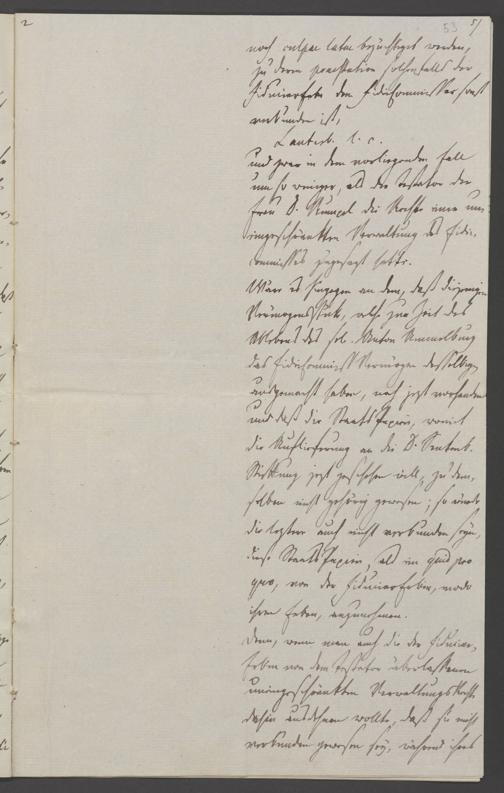 2
53
51
noch culpae latae bezüchtiget werden,
zu deren praestation solchenfalls der
Fiduciarerbe dem Fideicommissar sonst
verbunden ist,
Lauterb. l. c.
und zwar in dem vorliegenden Fall
um so weniger, als der Testator der
Frau D. die Rechte einer un-
eingeschränkten Verwaltung des Fidei-
commisses zugesagt hatte.
Wäre es hingegen an dem, daß diejenigen
Vermögensstücke, welche zur Zeit des
Ablebens des sel. Anton
das Fideicommiß Vermögen desselbigen
ausgemacht haben, noch jezt vorhanden
und daß die Staats Papiere, womit
die Auslieferung an die D. Senkenb.
Stiftung jezt geschehen will, zu dem-
selben nicht gehörig gewesen; so würde
die leztere auch nicht verbunden seyn,
diese Staats Papiere, als ein quid pro
quo, von der Fiduciar Erbin, modo
ihren Erben, anzunehmen.
Denn, wenn man auch die der Fiduciar-
Erbin von dem Testator überlassenen
uneingeschränkten Verwaltungs Rechte
dahin ausdehnen wollte, daß sie nicht
verbunden gewesen sey, während ihres